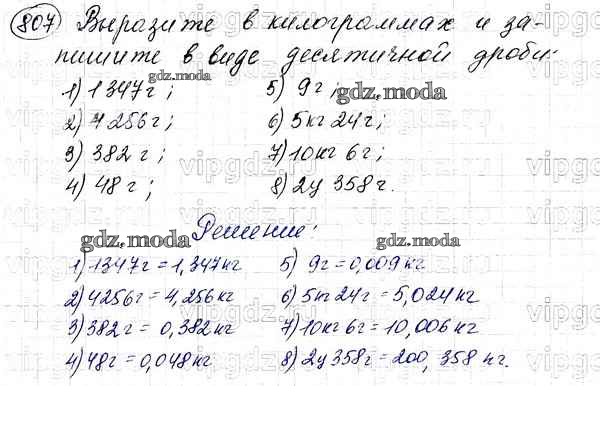 807 Выразите в килограммах и за-
пишите в виде десятичной дроби:
gdz.moda
1) 1347г; 5) 9г;
gdz.moda
2) 4256г; 6) 5кг 24г;
3) 382г; 7) 10кг 6г;
4) 48г; 8) 2ц 358г.
Решение:
gdz.moda gdz.moda
1) 1347г = 1,347кг 5) 9г = 0,009кг
2) 4256г = 4,256кг 6) 5кг 24г = 5,024кг
3) 382г = 0,382кг 7) 10кг 6г = 10,006кг
4) 48г = 0,048кг 8) 2ц 358г = 200,358кг.